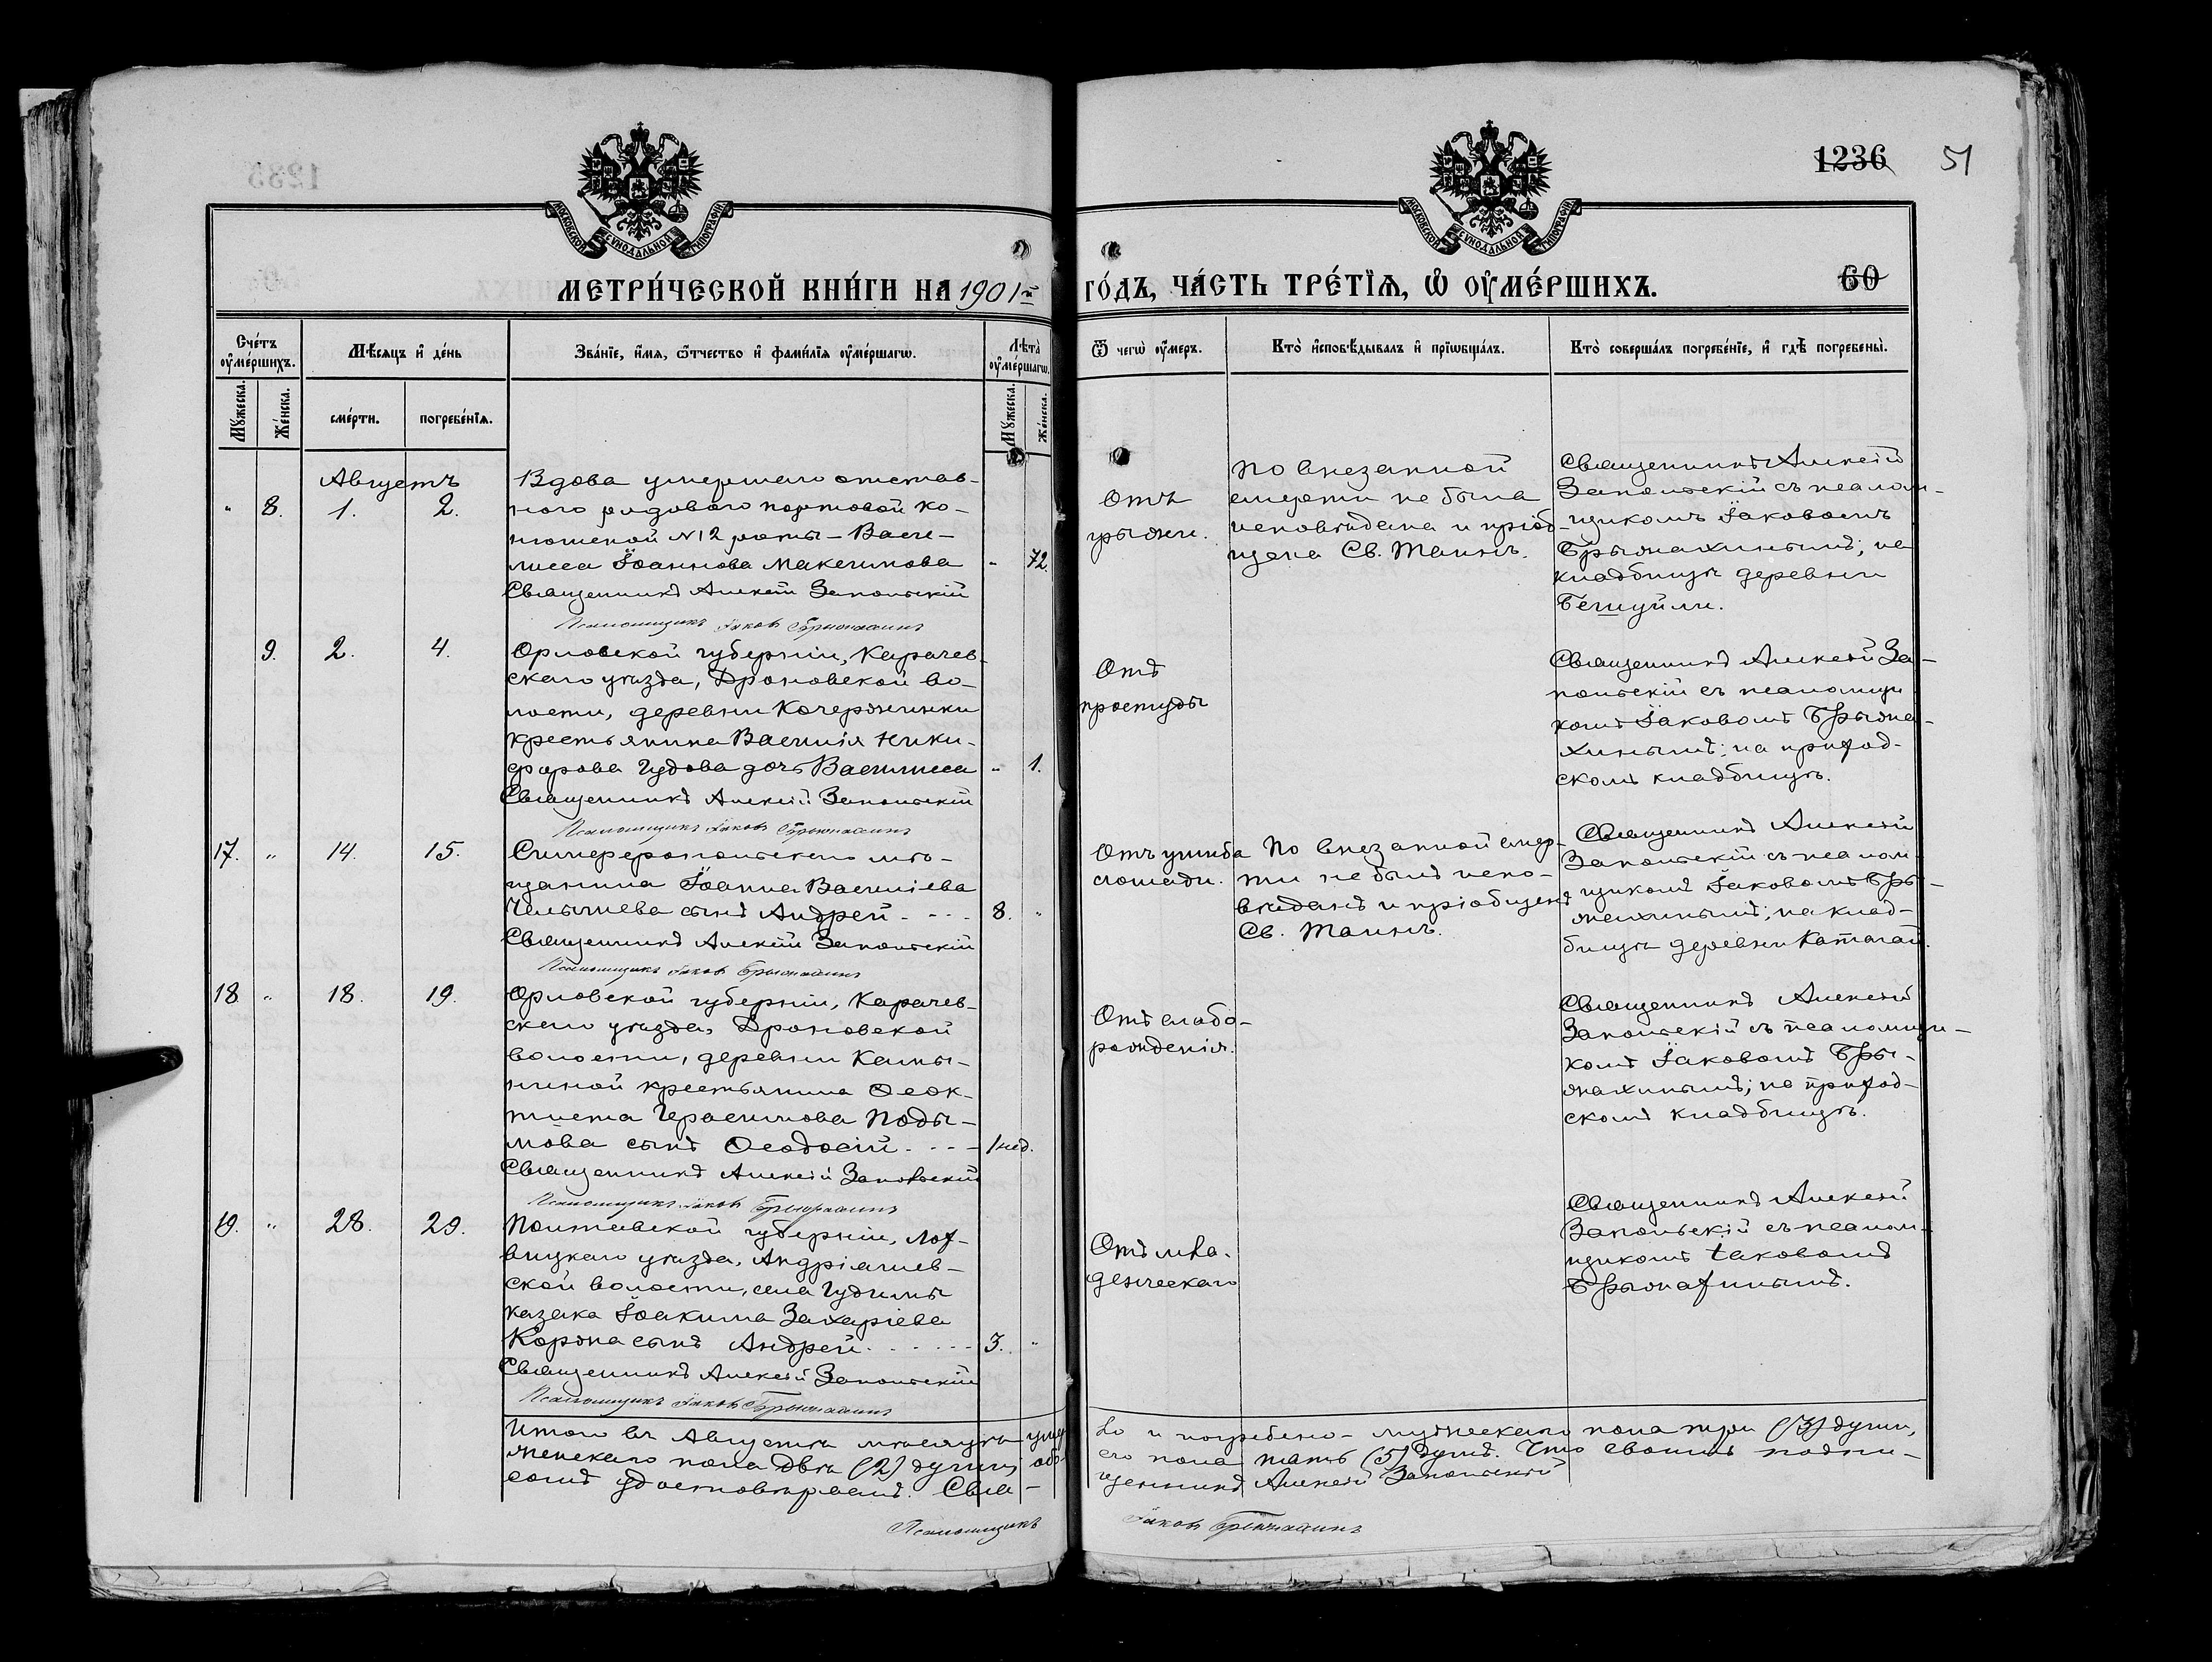 1236 51
МОСКОВСКОЙ СѴНОДАЛЬНОЙ ТИПОГРАФІИ
МОСКОВСКОЙ СѴНОДАЛЬНОЙ ТИПОГРАФІИ
МЕТРИ́ЧЕСКОЙ КНИ́ГИ НА 1901й ГО́ДЪ, ЧА́СТЬ ТРЕ́ТІѦ, Ѡ ОУМЕ́РШИХЪ. 60
Сче́тъ оуме́ршихъ.
Мѣ́сяцъ и де́нь
Зва́ніе, и́мѧ, ѿчество и фами́лїѧ оуме́ршагѡ.
Лѣта̀ оуме́ршагѡ.
Ѿ чегѡ̀ оу́меръ.
Кто̀ и҆сповѣ́дывалъ и҆ прїѡбща́лъ.
Кто̀ соверша́лъ погребе́нїе, и҆ гдѣ̀ погребены̀.
Мꙋ́жеска.
Же́нска.
сме́рти.
погребе́нїѧ.
Мꙋ́жеска.
Же́нска.
Августъ
" 8. 1. 2.
Вдова умершаго отстав-
ного рядового портовой ко-
нюшеной №12 роты - Васи-
лисса Іоаннова Максимова
- 72.
Священникъ Алексій Запольскій
Псаломщикъ Іаковъ Брыжахинъ
Отъ
грыжи.
По внезапной
смерти не была
исповѣдана и пріоб-
щена Св. Таинъ.
Священникъ Алексій
Запольскій съ псалом-
щикомъ Іаковомъ
Брыжахинымъ; на
кладбищѣ деревни
Бешуйли.
9. 2. 4.
Орловской губерніи, Карачев-
скаго уѣзда, Дроновской во-
лости, деревни Кочержинки
крестьянина Василія Ники-
форова Гудова дочь Василисса
" 1.
Священникъ Алексій Запольскій
Псаломщикъ Іаковъ Брыжахинъ
Отъ
простуды
Священникъ Алексій За-
польскій съ псаломщи
комъ Іаковомъ Брыжа-
хинымъ; на приход-
скомъ кладбищѣ.
17. " 14. 15.
Симферопольскаго мѣ-
щанина Іоанна Василіева
Челышева сынъ Андрей
8. "
Священникъ Алексій Запольскій
Псаломщикъ Іаковъ Брыжахинъ
Отъ ушиба
лошади.
По внезапной смер-
ти не былъ испо-
вѣданъ и пріобщенъ
Св. Таинъ.
Священникъ Алексій
Запольскій съ псалом-
щикомъ Іаковомъ Бры-
жахинымъ; на клад-
бищѣ деревни Катагай.
18 " 18. 19.
Орловской губерніи, Карачев-
скаго уѣзда, Дроновской
волости, деревни Камы-
ниной крестьянина Ѳеок-
тиста Герасимова Поды-
мова сынъ Ѳеодосій
1 нед.
Священникъ Алексій Запольскій
Псаломщикъ Іаковъ Брыжахинъ
Отъ слабо-
рожденія.
Священникъ Алексій
Запольскій съ псаломщи-
комъ Іаковомъ Бры-
жахинымъ; на приход-
скомъ кладбищѣ.
19. " 28. 29.
Полтавской губерніи, Лох-
вицкаго уѣзда, Андріяшев-
ской волости, села Гудимы
казака Іоакима Захаріева
Коржа сынъ Андрей
3. "
Священникъ Алексій Запольскій
Псаломщикъ Іаковъ Брыжахинъ
Отъ мла-
денческаго
Священникъ Алексій
Запольскій съ псалом-
щикомъ Іаковомъ
Брыжахинымъ.
Итого въ Августѣ мѣсяцѣ умер
ло и погребено - мужескаго пола три (3) души,
женскаго пола двѣ (2) души, обо-
его пола пять (5) душъ. Что своимъ подпи-
сомъ удостовѣряемъ. Свя-
щенникъ Алексій Запольскій
Псаломщикъ Іаковъ Брыжахинъ